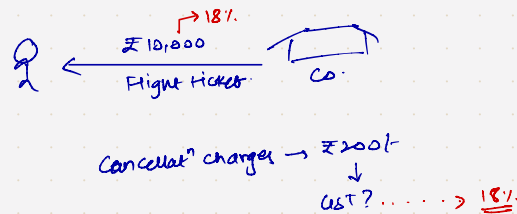 → 18%
₹10,000
Flight ticket.
Co.
Cancellatⁿ charges → ₹200/-
↓
GST? ...... → 18%